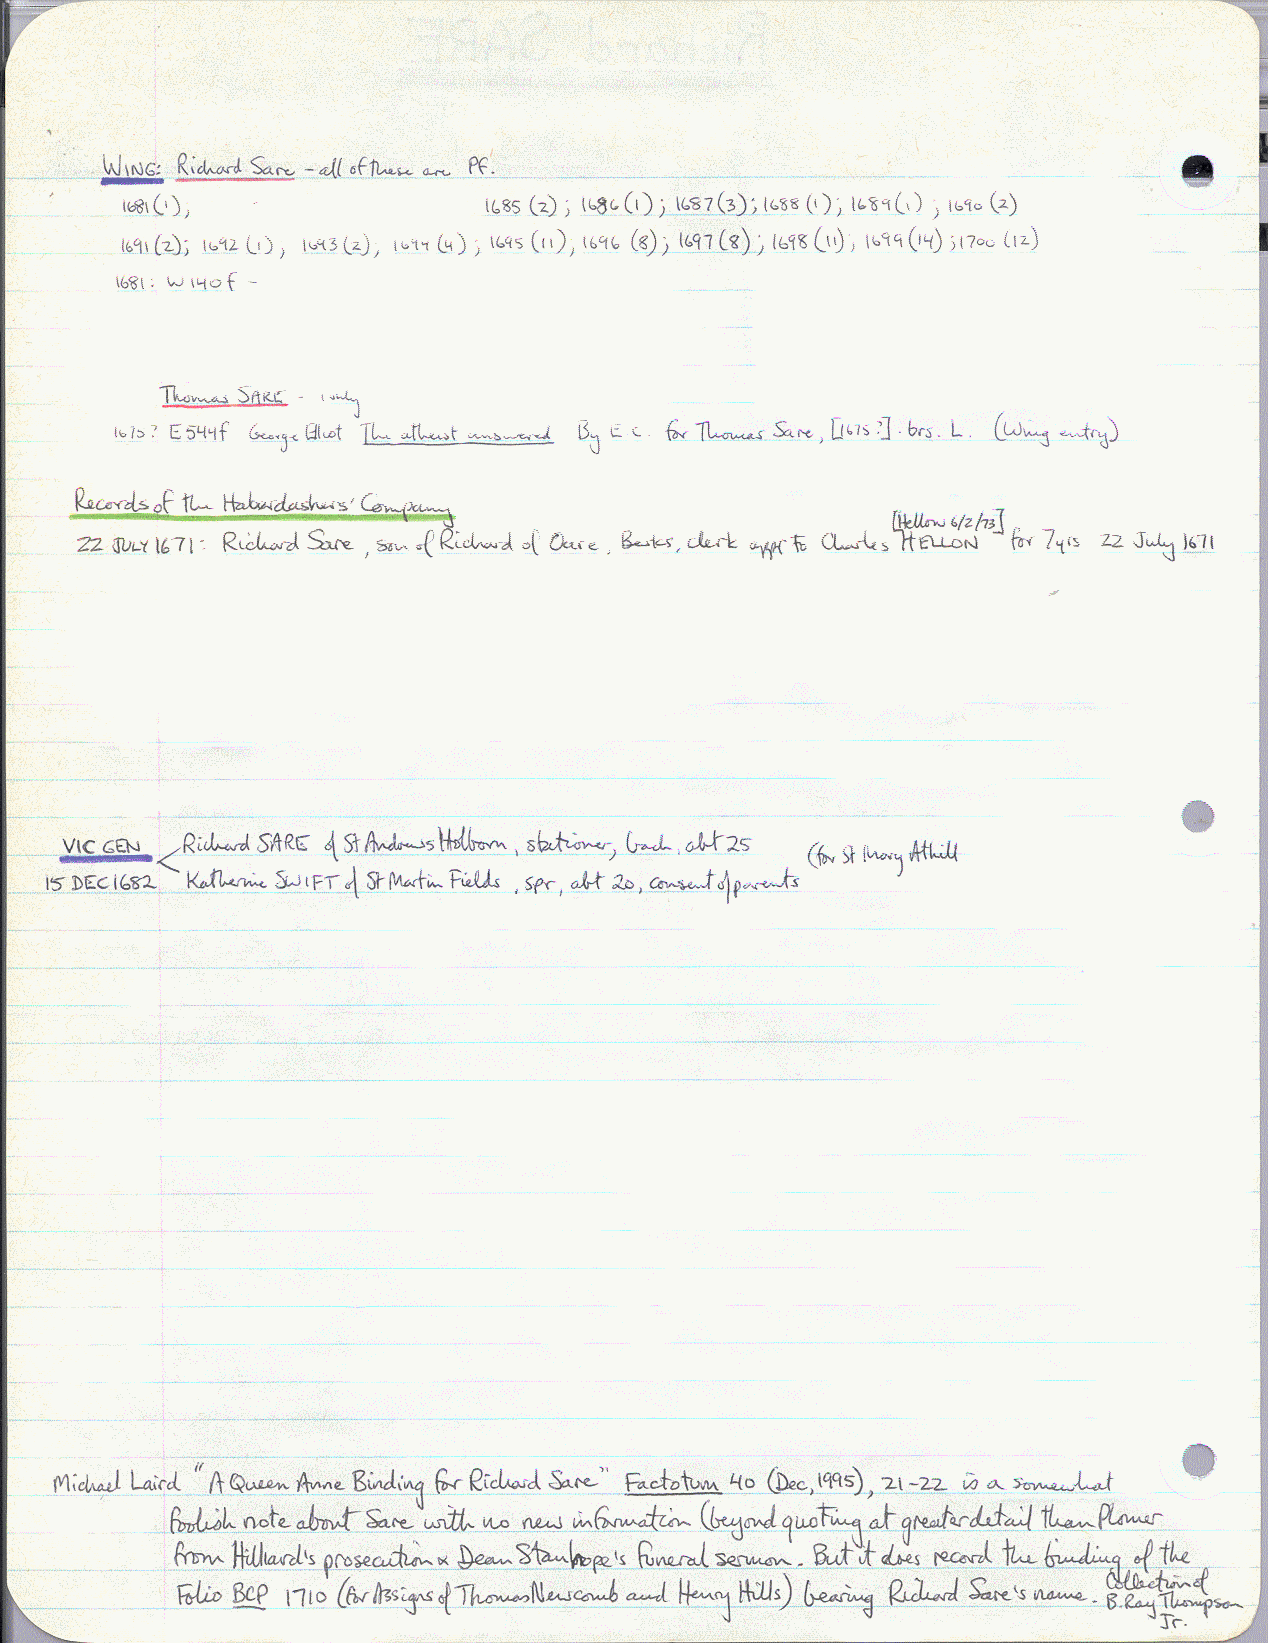 WING: Richard Sare - all of these are PF.
1681(1); 1685(2); 1686(1); 1687(3); 1688(1); 1689(1); 1690(2)
1691(2); 1692(1), 1693(2), 1694(4); 1695(11), 1696(8); 1697(8); 1698(11); 1699(14); 1700(12)
1681: W140f -
Thomas SARE - 1 only
1675? E544f George Eliot The atheist answered By E C. for Thomas Sare, [1675?]. brs. L. (Wing entry)
Records of the Haberdashers' Company
[Hellow 6/2/73]
22 JULY 1671: Richard Sare, son of Richard of Oare, Berks, clerk appr to Charles HELLON for 7yrs 22 July 1671
VIC GEN Richard SARE of St Andrews Holborn, stationer, bach, abt 25 (for St Mary Athill
15 DEC 1682 Katherine SWIFT of St Martin Fields, spr, abt 20, consent of parents
Michael Laird "A Queen Anne Binding for Richard Sare" Factotum 40 (Dec, 1995), 21-22 is a somewhat
foolish note about Sare with no new information (beyond quoting at greater detail than Plomer
from Hilliard's prosecution & Dean Stanhope's funeral sermon. But it does record the binding of the
Folio BCP 1710 (for Assigns of Thomas Newcomb and Henry Hills) bearing Richard Sare's name. Collection of
B. Ray Thompson
Jr.